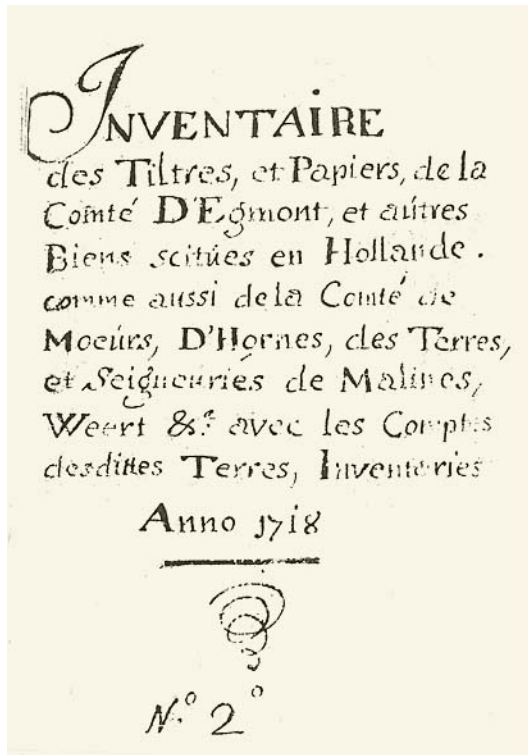 INVENTAIRE
des Tiltres, et Papiers, de la
Comté D'Egmont, et aútres
Biens scitúes en Hollande.
comme aussi de la Comté de
Moeúrs, D'Hornes, des Terres,
et Seigneuries de Malines,
Weert &ᵃ. avec les Comptes
desdittes Terres, Inventeries
Anno 1718
N.º 2º